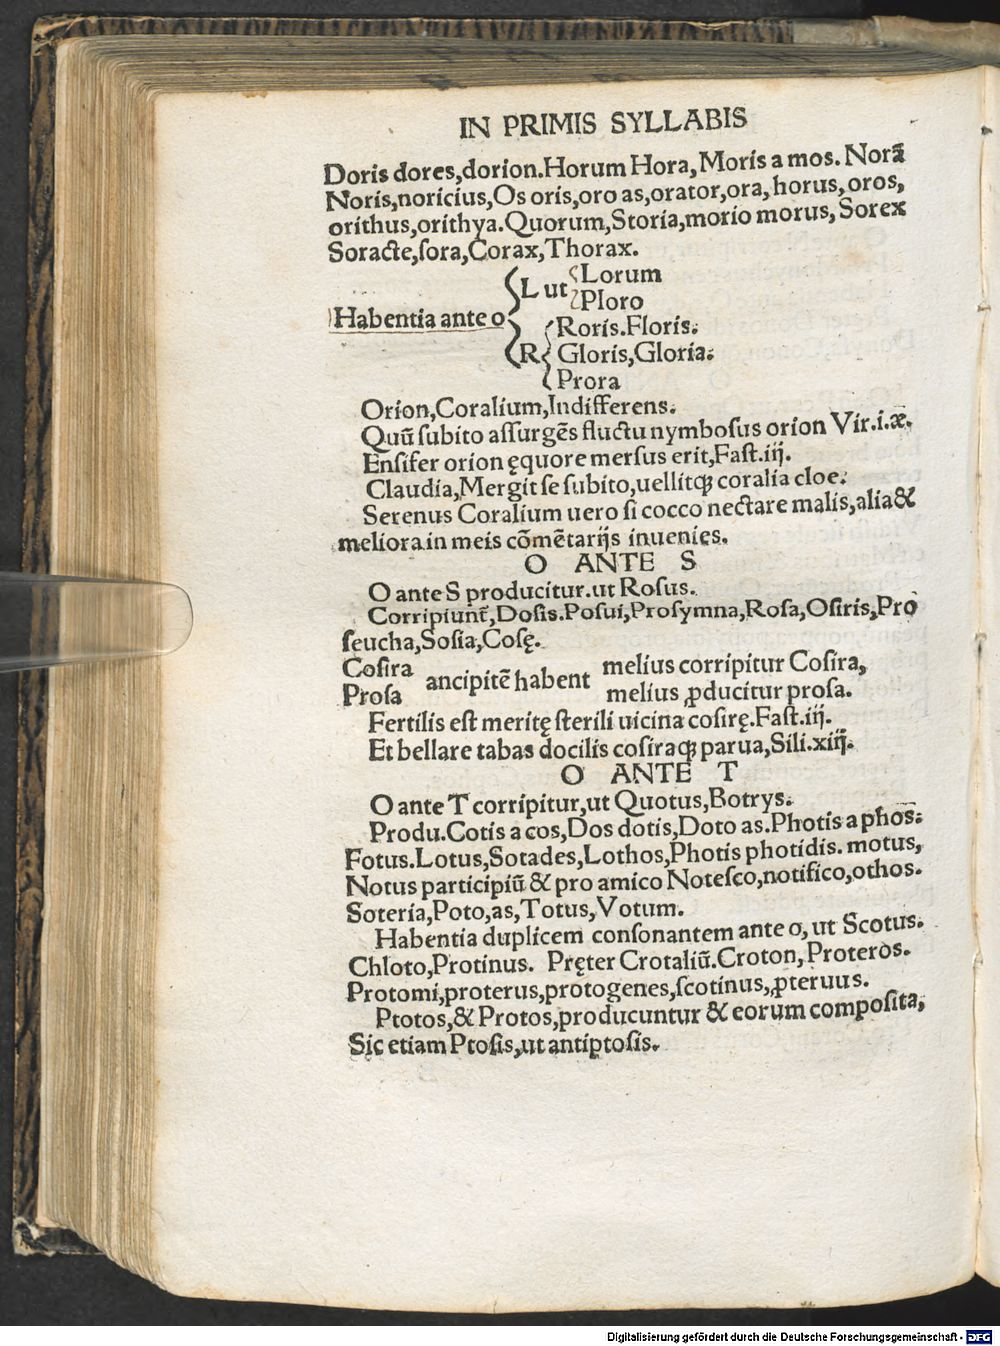 IN PRIMIS SYLLABIS
Doris dores,dorion.Horum Hora,Moris a mos. Norã
Noris,noricius,Os oris,oro as,orator,ora,horus,oros,
orithus,orithya.Quorum,Storia,morio morus,Sorex
Soracte,ſora,Corax,Thorax.
Lorum
L ut
Ploro
Habentia ante o
Roris.Floris.
R Gloris,Gloria.
Prora
Orion,Coralium,Indifferens.
Quũ ſubito aſſurgẽs fluctu nymboſus orion Vir.i.æ.
Enſifer orion ęquore merſus erit,Faſt.iij.
Claudia,Mergit ſe ſubito,uellitqꝫ coralia cloe.
Serenus Coralium uero ſi cocco nectare malis,alia&
meliora in meis cõmẽtarijs inuenies.
O ANTE S
O ante S producitur.ut Roſus.
Corripiunt̃,Doſis.Poſui,Proſymna,Roſa,Oſiris,Pro
ſeucha,Soſia,Coſę.
Coſira
Proſa
ancipitẽ habent
melius corripitur Coſira,
melius ꝓducitur proſa.
Fertilis eſt meritę ſterili uicina coſirę.Faſt.iij.
Et bellare tabas docilis coſiraqꝫ parua,Sili.xiiij.
O ANTE T
O ante T corripitur,ut Quotus,Botrys.
Produ.Cotis a cos,Dos dotis,Doto as.Photis a phos.
Fotus.Lotus,Sotades,Lothos,Photis photidis. motus,
Notus participiũ & pro amico Noteſco,notifico,othos.
Soteria,Poto,as,Totus,Votum.
Habentia duplicem conſonantem ante o, ut Scotus.
Chloto,Protinus. Pręter Crotaliũ.Croton,Proteros.
Protomi,proterus,protogenes,ſcotinus,ꝓteruus.
Ptotos,& Protos,producuntur & eorum compoſita,
Sic etiam Ptoſis,ut antiptoſis.
Digitalisierung gefördert durch die Deutsche Forschungsgemeinschaft - DFG